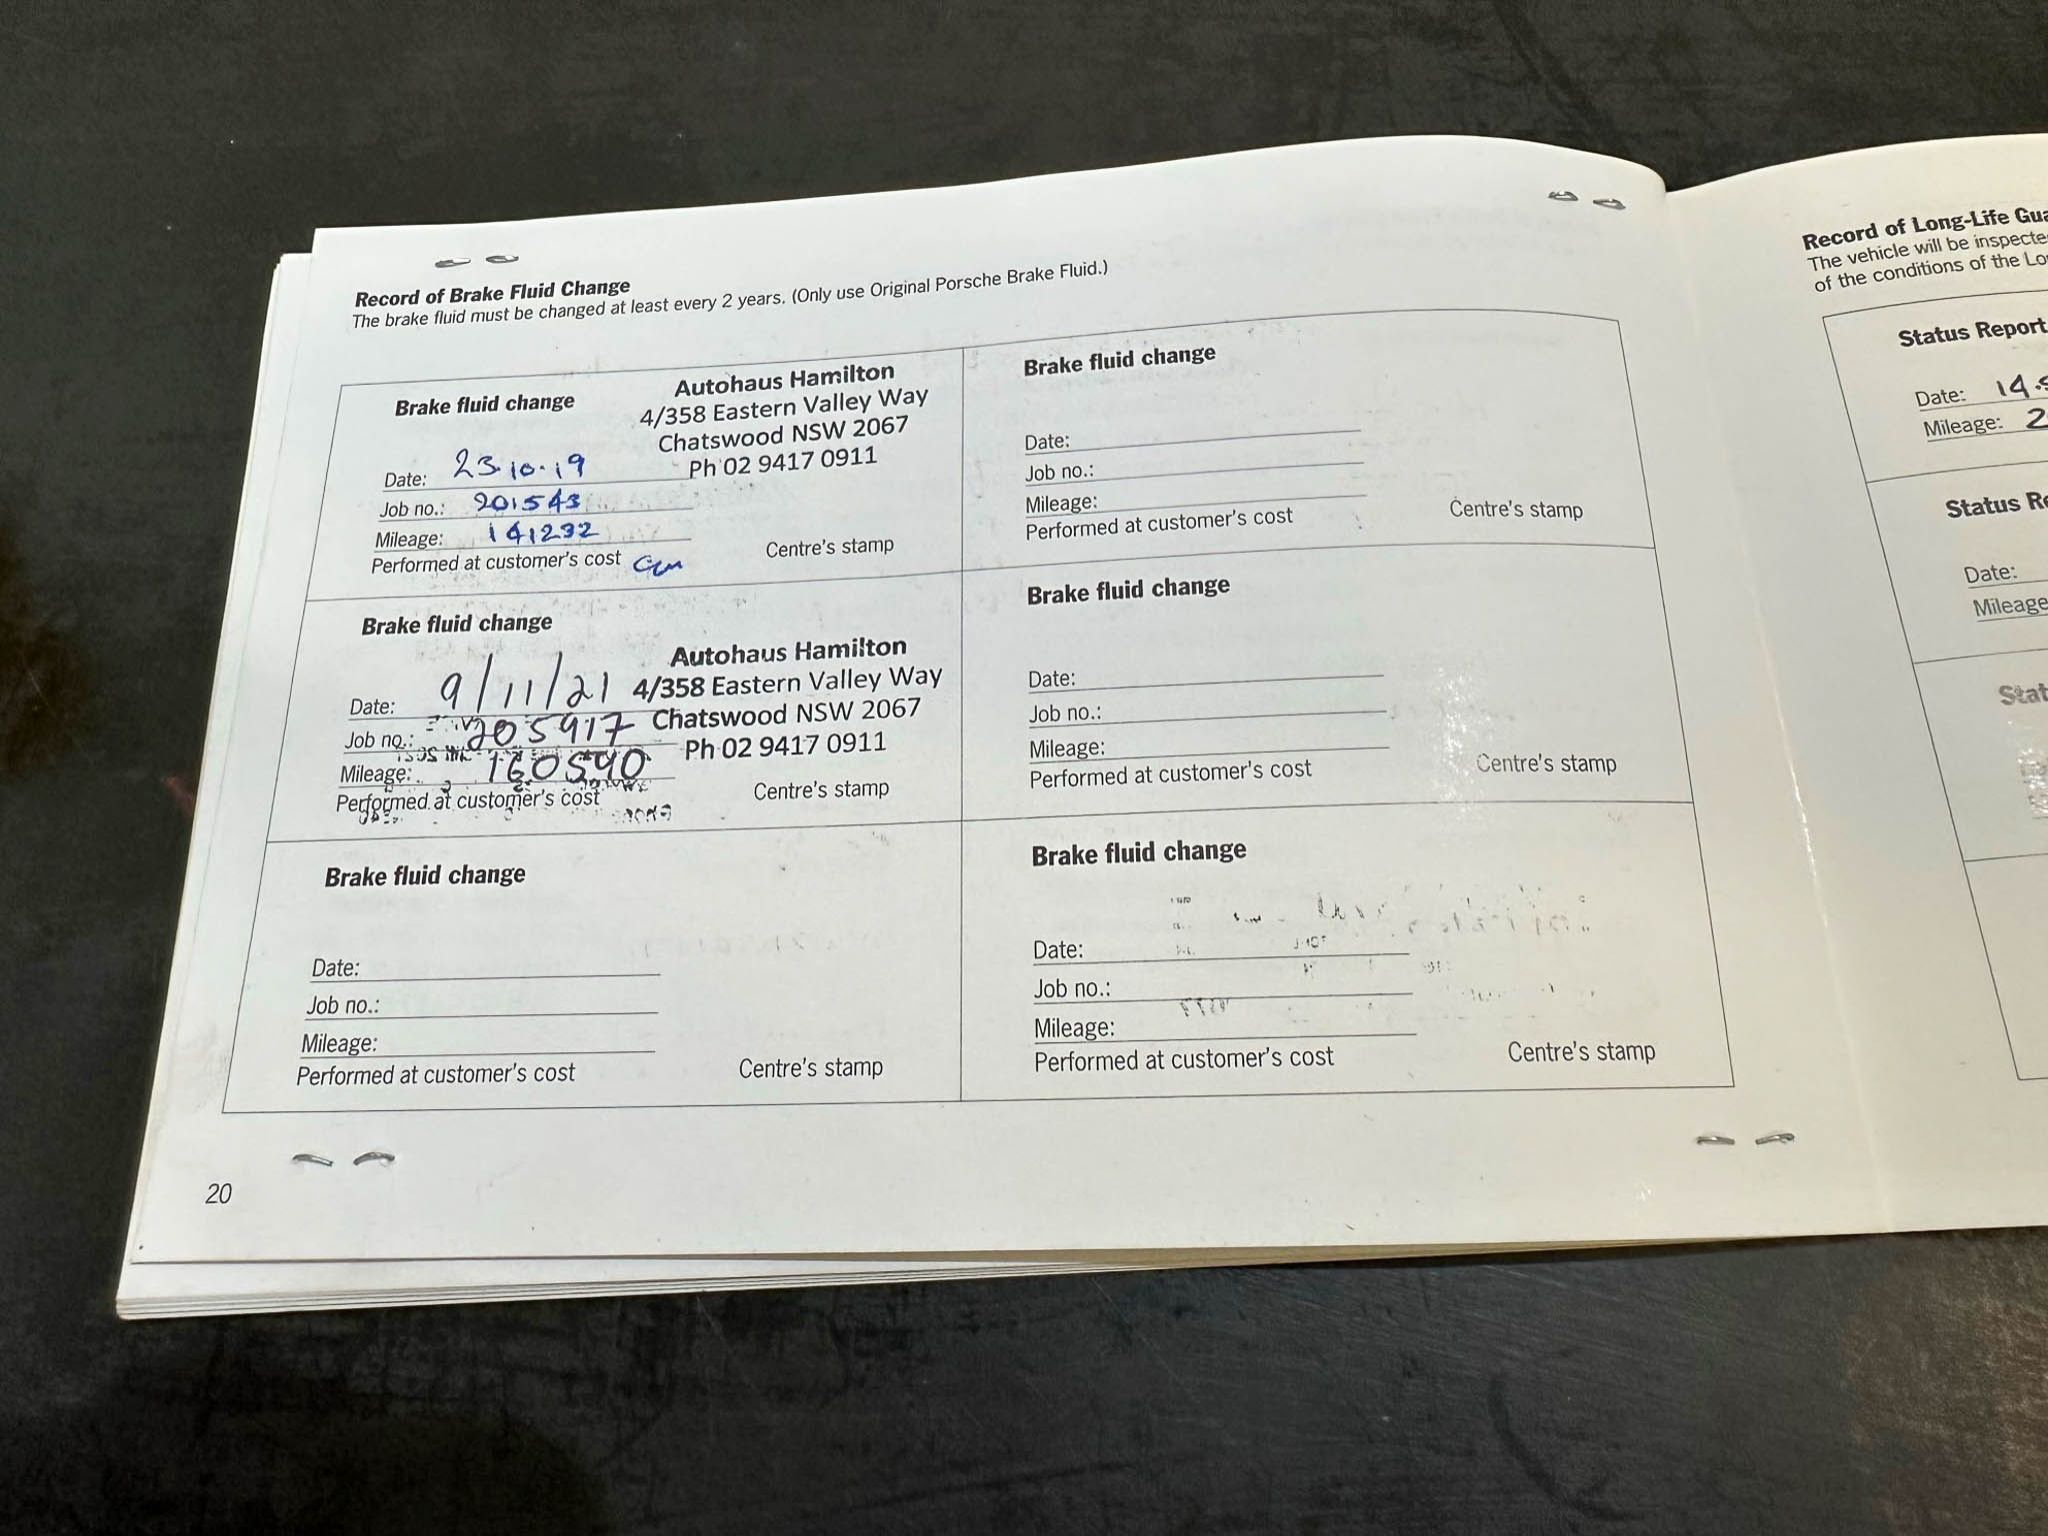 Record of Brake Fluid Change
The brake fluid must be changed at least every 2 years. (Only use Original Porsche Brake Fluid.)
Brake fluid change
Autohaus Hamilton
4/358 Eastern Valley Way
Chatswood NSW 2067
Ph 02 9417 0911
Date: 23.10.19
Job no.: 201543
Mileage: 141232
Performed at customer's cost
Centre's stamp
Brake fluid change
Autohaus Hamilton
4/358 Eastern Valley Way
Chatswood NSW 2067
Ph 02 9417 0911
Date: 9/11/21
Job no.: 205917
Mileage: 160590
Performed at customer's cost
Centre's stamp
Brake fluid change
Date:
Job no.:
Mileage:
Performed at customer's cost
Centre's stamp
Brake fluid change
Date:
Job no.:
Mileage:
Performed at customer's cost
Centre's stamp
Brake fluid change
Date:
Job no.:
Mileage:
Performed at customer's cost
Centre's stamp
Brake fluid change
Date:
Job no.:
Mileage:
Performed at customer's cost
Centre's stamp
20
Record of Long-Life Gua
The vehicle will be inspecte
of the conditions of the Lo
Status Report
Date: 14.
Mileage: 2
Status Re
Date:
Mileage
Stat